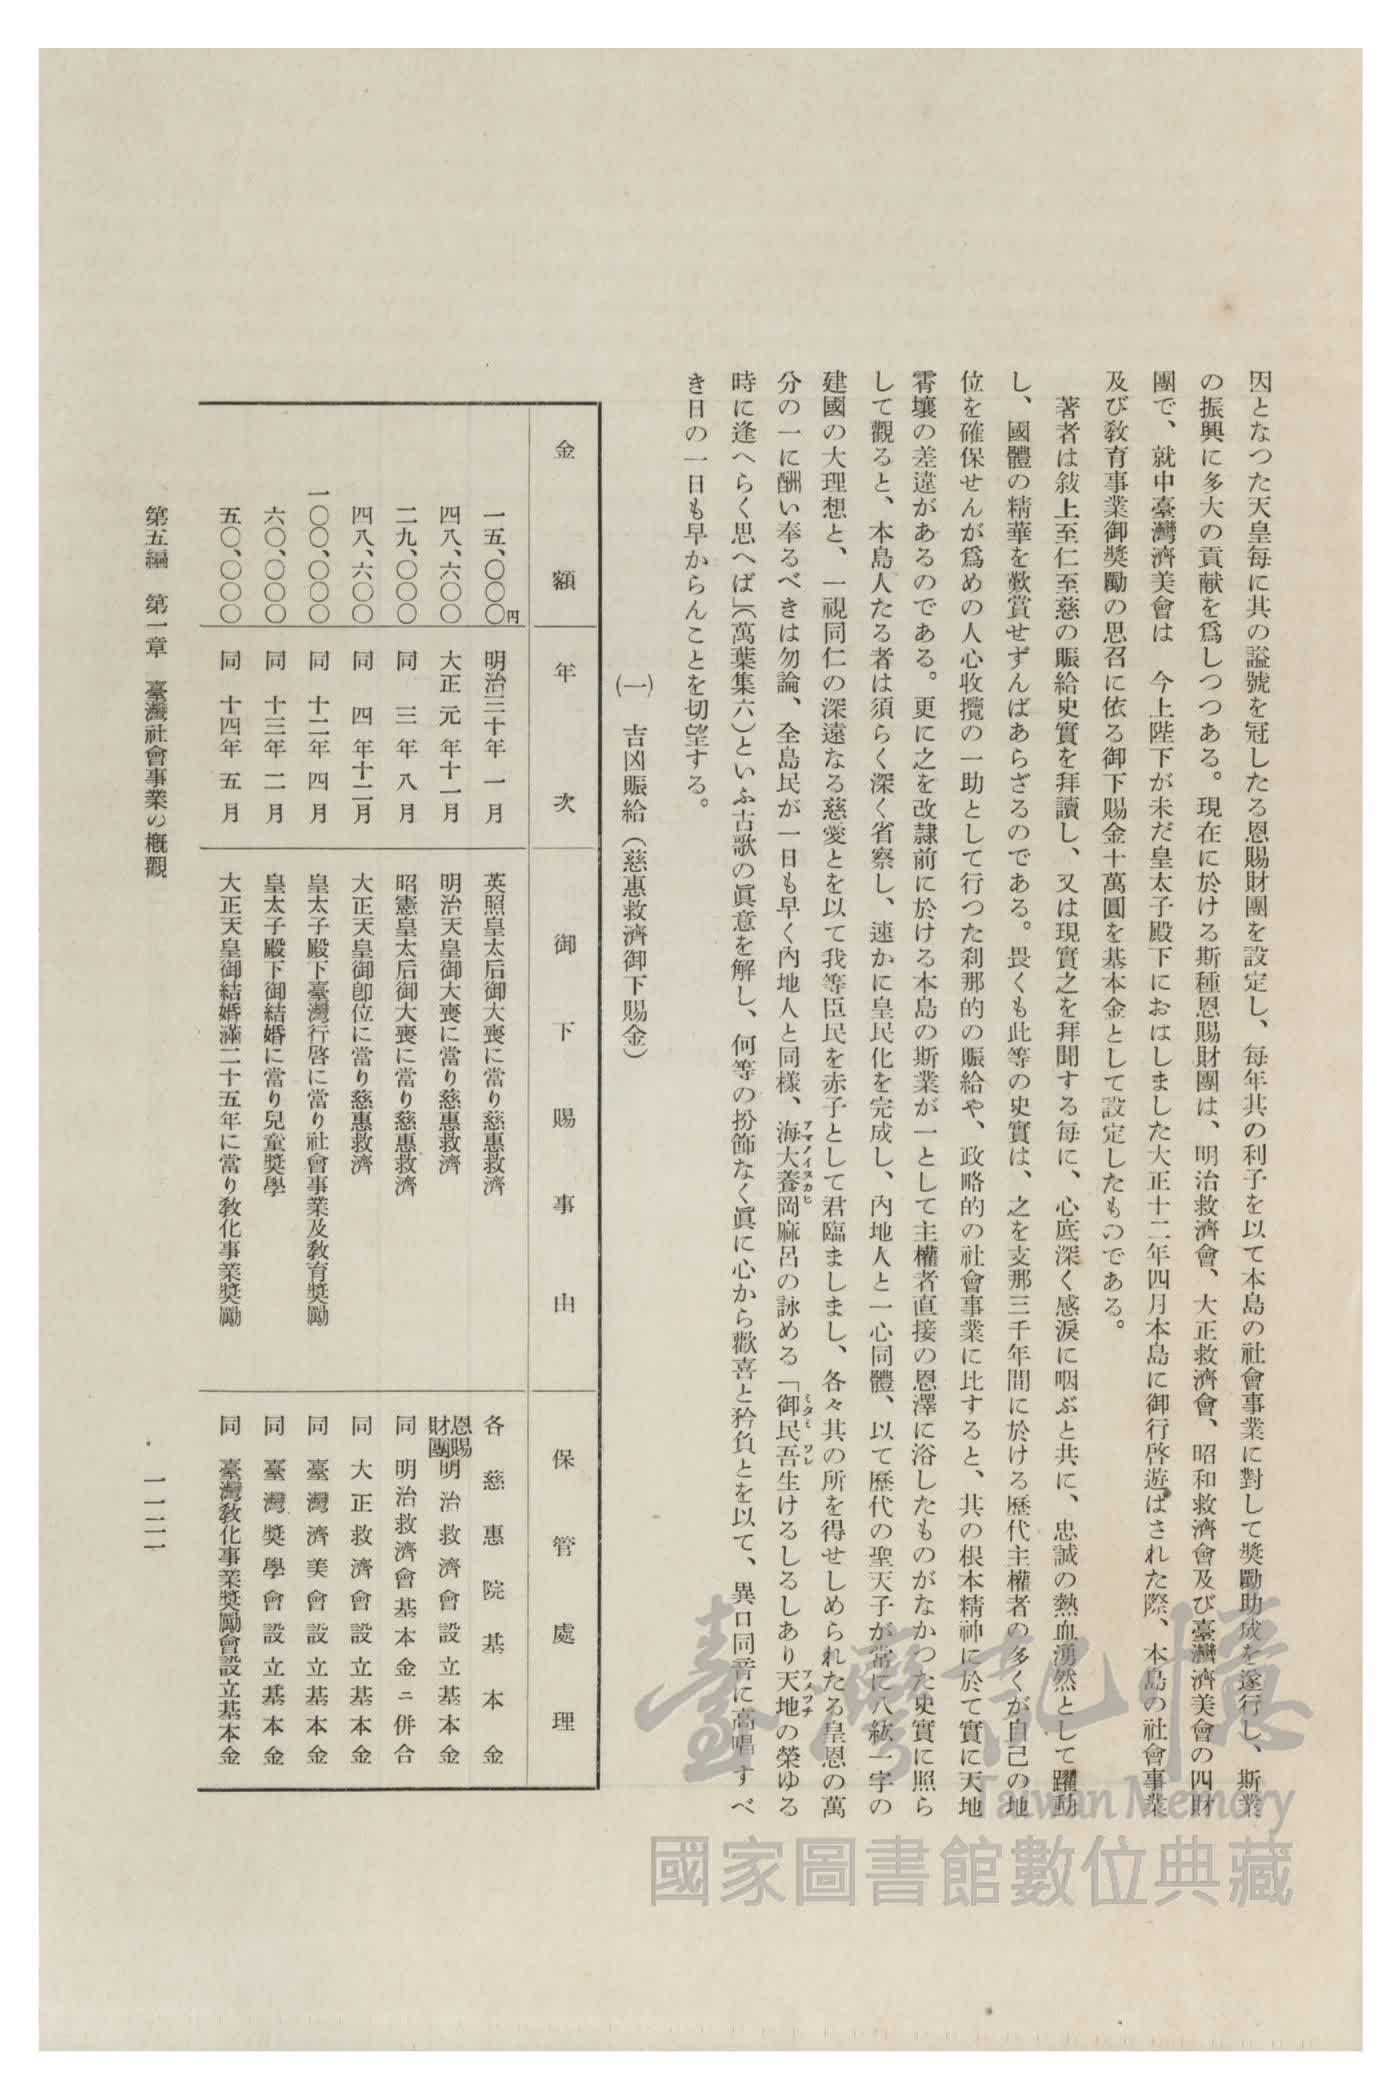 因となつた天皇每に其の謚號を冠したる恩賜財團を設定し、每年其の利子を以て本島の社會事業に對して奬勵助成を遂行し、斯業
の振興に多大の貢献を爲しつつある。現在に於ける斯種恩賜財團は、明治救濟會、大正救濟會、昭和救濟會及び臺灣濟美會の四財
團で、就中臺灣濟美會は　今上陛下が未だ皇太子殿下におはしました大正十二年四月本島に御行啓遊ばされた際、本島の社會事業
及び敎育事業御奬勵の思召に依る御下賜金十萬圓を基本金として設定したものである。
著者は敍上至仁至慈の賑給史實を拜讀し、又は現實之を拜聞する每に、心底深く感淚に咽ぶと共に、忠誠の熱血湧然として躍動
し、國體の精華を歎賞せずんばあらざるのである。畏くも此等の史實は、之を支那三千年間に於ける歷代主權者の多くが自己の地
位を確保せんが爲めの人心收攬の一助として行つた刹那的の賑給や、政略的の社會事業に比すると、其の根本精神に於て實に天地
霄壤の差違があるのである。更に之を改隷前に於ける本島の斯業が一として主權者直接の恩澤に浴したものがなかつた史實に照ら
して觀ると、本島人たる者は須らく深く省察し、速かに皇民化を完成し、內地人と一心同體、以て歷代の聖天子が常に八紘一宇の
建國の大理想と、一視同仁の深遠なる慈愛とを以て我等臣民を赤子として君臨ましまし、各々其の所を得せしめられたる皇恩の萬
分の一に酬い奉るべきは勿論、全島民が一日も早く內地人と同樣、海犬養岡麻呂の詠める「御民吾生けるしるしあり天地の榮ゆる
アマノイヌカヒ
ミタミ ワレ
アメツチ
時に逢へらく思へば」(萬葉集六)といふ古歌の眞意を解し、何等の扮飾なく眞に心から歡喜と矜負とを以て、異口同音に高唱すべ
き日の一日も早からんことを切望する。
(一)　吉凶賑給(慈惠救濟御下賜金)
金額　年次　御下賜事由　保管處理
一五、〇〇〇円　明治三十年一月　英照皇太后御大喪に當り慈惠救濟　各慈惠院基本金
四八、六〇〇　大正元年十一月　明治天皇御大喪に當り慈惠救濟　恩賜財團明治救濟會設立基本金
二九、〇〇〇　同三年八月　昭憲皇太后御大喪に當り慈惠救濟　同　明治救濟會基本金ニ併合
四八、六〇〇　同四年十二月　大正天皇御卽位に當り慈惠救濟　同　大正救濟會設立基本金
一〇〇、〇〇〇　同十二年四月　皇太子殿下臺灣行啓に當り社會事業及敎育奬勵　同　臺灣濟美會設立基本金
六〇、〇〇〇　同十三年二月　皇太子殿下御結婚に當り兒童奬學　同　臺灣奬學會設立基本金
五〇、〇〇〇　同十四年五月　大正天皇御結婚滿二十五年に當り敎化事業奬勵　同　臺灣敎化事業奬勵會設立基本金
第五編　第一章　臺灣社會事業の槪觀
一一二一
臺灣記憶
Taiwan Memory
國家圖書館數位典藏